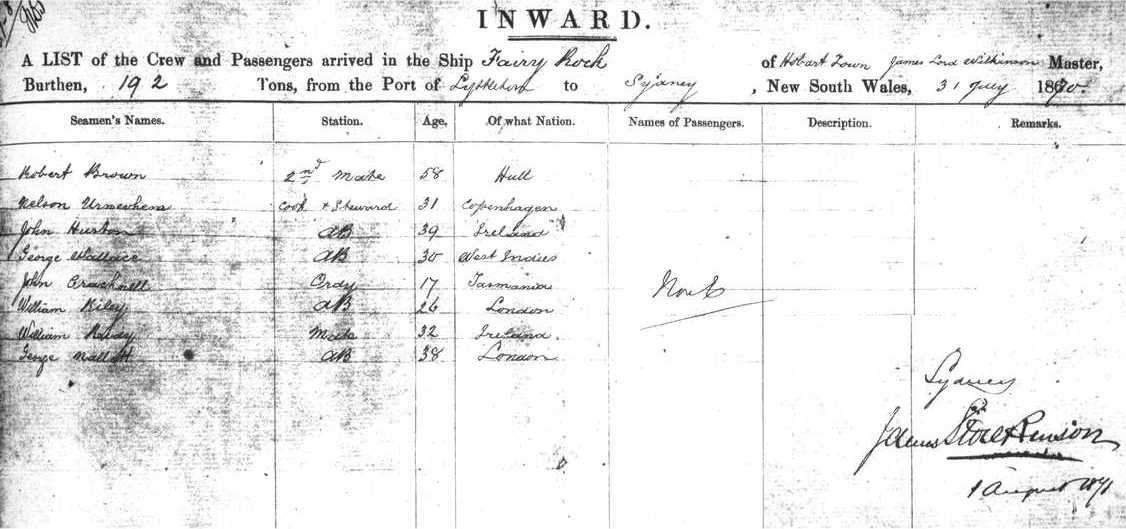 INWARD.
A LIST of the Crew and Passengers arrived in the Ship Fairy Rock of Hobart Town James Lord Wilkinson Master,
Burthen, 192 Tons, from the Port of Lyttleton to Sydney, New South Wales, 31 July 18
Seamen's Names. Station. Age. Of what Nation. Names of Passengers. Description. Remarks.
Robert Brown 2nd Mate 58 Hull
Nelson Cook & Steward 31 Copenhagen
John Huston AB 39 Ireland
George Wallace AB 30 West Indies
John Ordy 17 Tasmania
None
William Riley AB 26 London
William Mate 32 Ireland
George AB 38 London
Sydney
James
1 August 1871